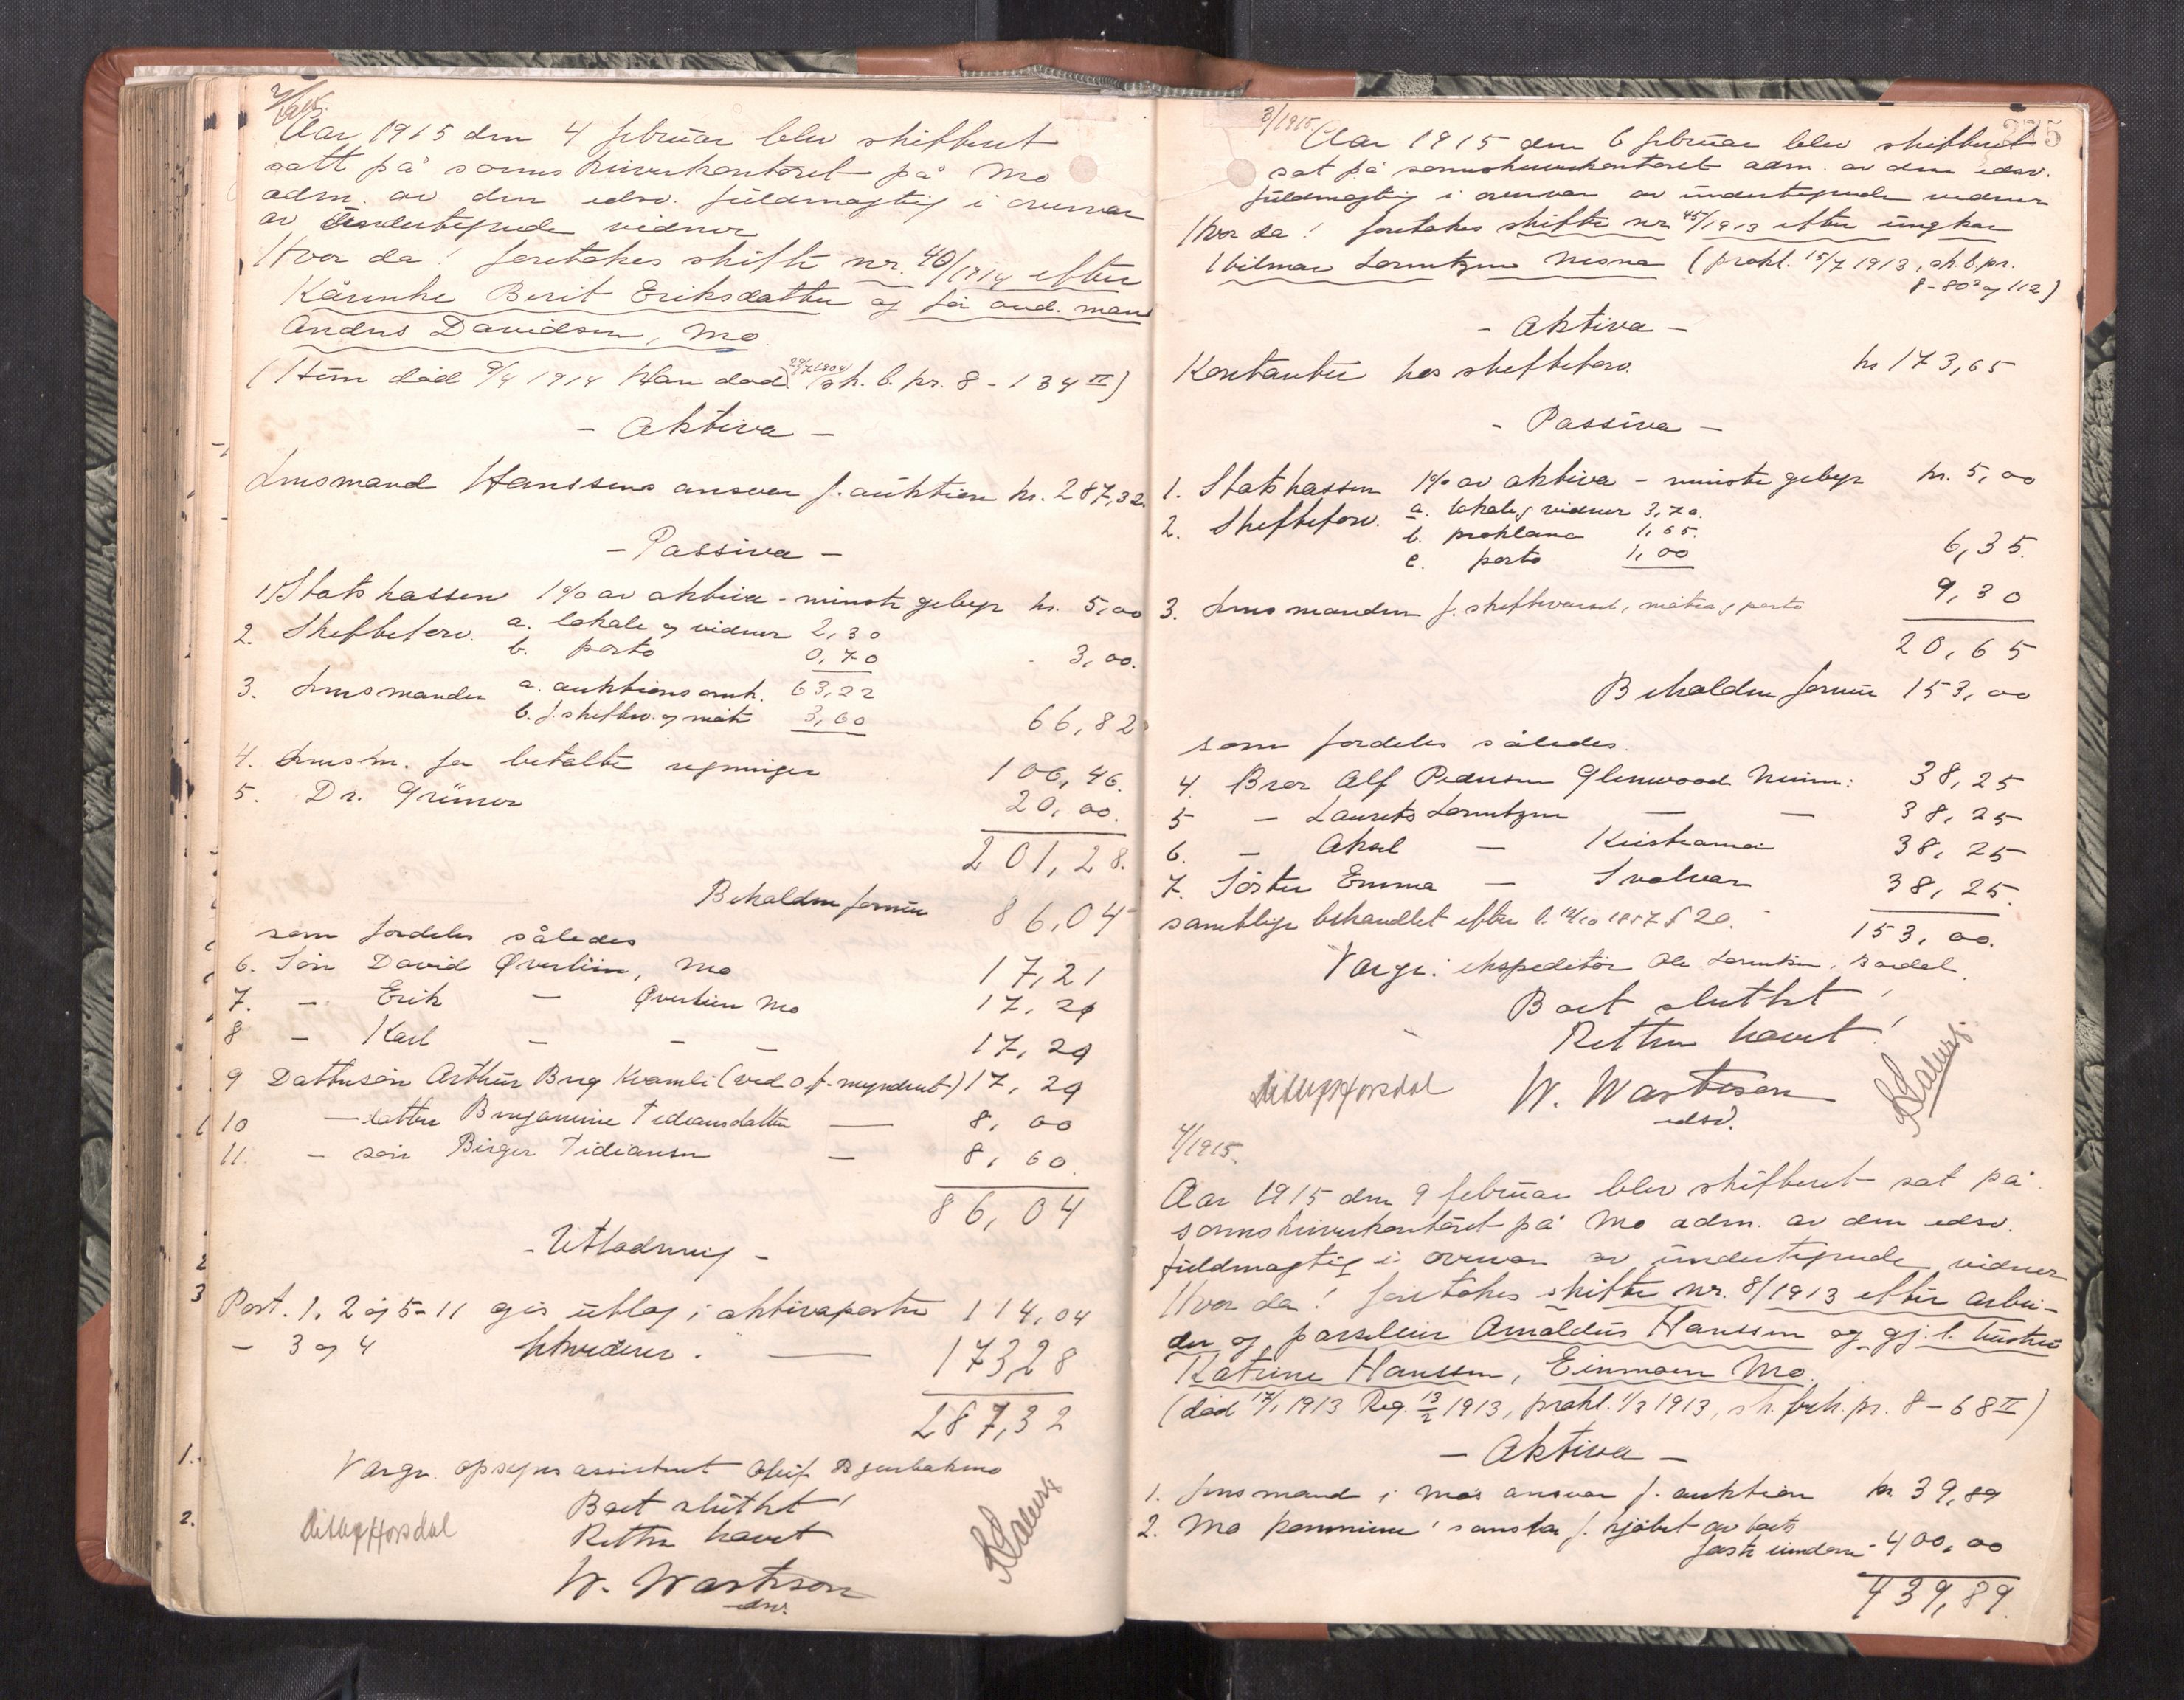 2/1915.
Aar 1915 den 4 februar blev skifteret
satt på sorenskriverkontoret på Mo
adm. av den edsv. fuldmægtig i overvær
av undertegnede vidner
Hvor da! foretokes skifte nr. 40/1914 efter
Kårinke Berit Eriksdatter og før avd. mand
Andus Davidsen, Mo.
(Hun død 9/4 1914 Han død 29/7 1904 sk. b. pr. 8 - 134 II)
- Aktiva -
Lensmand Hanssens ansvar f. auktion kr. 287,32.
- Passiva -
1) Statskassen 1% av aktiva - minste gebyr kr. 5,00
2. Skifteforv. a. lokale og vidner 2,30
b. porto 0,70 - 3,00.
3. Lensmanden a. auktionsomk. 63,22
b. f. skiftev. og møte 3,60 66,82
4. Lensm. for betalte regninger 106,46.
5. Dr. Grüner 20,00.
201,28.
Beholden formue 86,04
som fordeles således
6. Søn David Øverlien, Mo 17,21
7. - Erik - Øverlien Mo 17,21
8 - Karl - - - 17,21
9 Dattersøn Arthur Berg Kvamli (ved o.f.-myndert) 17,21
10 - datter Benjamine Tidiansdatter — 8,60
11. - søn Birger Tidiansen — 8,60.
86,04
- Utlodning -
Post. 1, 2 og 5-11 gis utlæg i aktivaposten 114,04
- 3 og 4 likviderer - " — 173,28
287,32
Værge. opsynsassistent Bjerbakmo
Boet sluttet!
Retten hævet
W. Wartison
edsv.
3/1915.
225
Aar 1915 den 6 februar blev skifteret
sat på sorenskriverkontoret adm. av den edsv.
fuldmægtig i overvær av undertegnede vidner
Hvor da! foretokes skifte nr 45/1913 efter ungkar
Hilmar Lorentzen Nesna (prokl. 15/7 1913, sk.b.pr.
8-80² og 112)
- Aktiva -
Kontanter hos skifteforv. kr 173,65
- Passiva -
1. Statskassen 1% av aktiva - minste gebyr kr. 5,00
2. Skifteforv. a. lokale og vidner 3,70.
b. proklama 1,65.
c. porto 1,00 6,35.
3. Lensmanden f. skiftevæsel, møte og porto 9,30
20,65
Beholden formue 153,00
som fordeles således.
4. Bror Alf Pedersen Glenwood Minn: 38,25
5 - Laurits Lorentzen — — 38,25
6. - Aksel — Kristiania 38,25
7. Søster Emma — Svolvær 38,25.
samtlige behandlet efter l. 12/10 1857 § 20. - 153,00.
Værge: ekspeditør Ole Lorentsen,
Boet sluttet!
Retten hævet!
W. Wartison
edsv.
4/1915.
Aar 1915 den 9 februar blev skifteret sat på
sorenskriverkontoret på Mo adm. av den edsv.
fuldmægtig i overvær av undertegnede vidner
Hvor da! foretokes skifte nr. 8/1913 efter arbei-
der og parseleier Arnoldus Hanssen og gj.l. hustru
Katrine Hanssen, Einmoen Mo.
(død 17/1 1913 Reg. 13/2 1913, prokl. 1/3 1913, sk. beh. pr. 8 - 68 II)
- Aktiva -
1. Lensmand i Mo's ansvar f. auktion kr. 39,89
2. Mo kommune's ansvar f. kjøbet av boets
faste eiendom - 400,00
439,89.